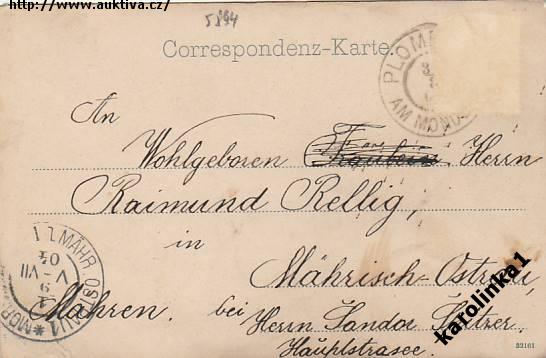 http://www.auktiva.cz/
5894
Correspondenz-Karte.
PLOM
AM MOND
An
Wohlgeboren Fräulein Herrn
Raimund Rellig,
in
Mährisch-Ostrau,
Mähren. bei
Herrn Sandor
Hauptstrasse.
MÄHR. OSTRAU 1 * MOR.
karolinka1
32161